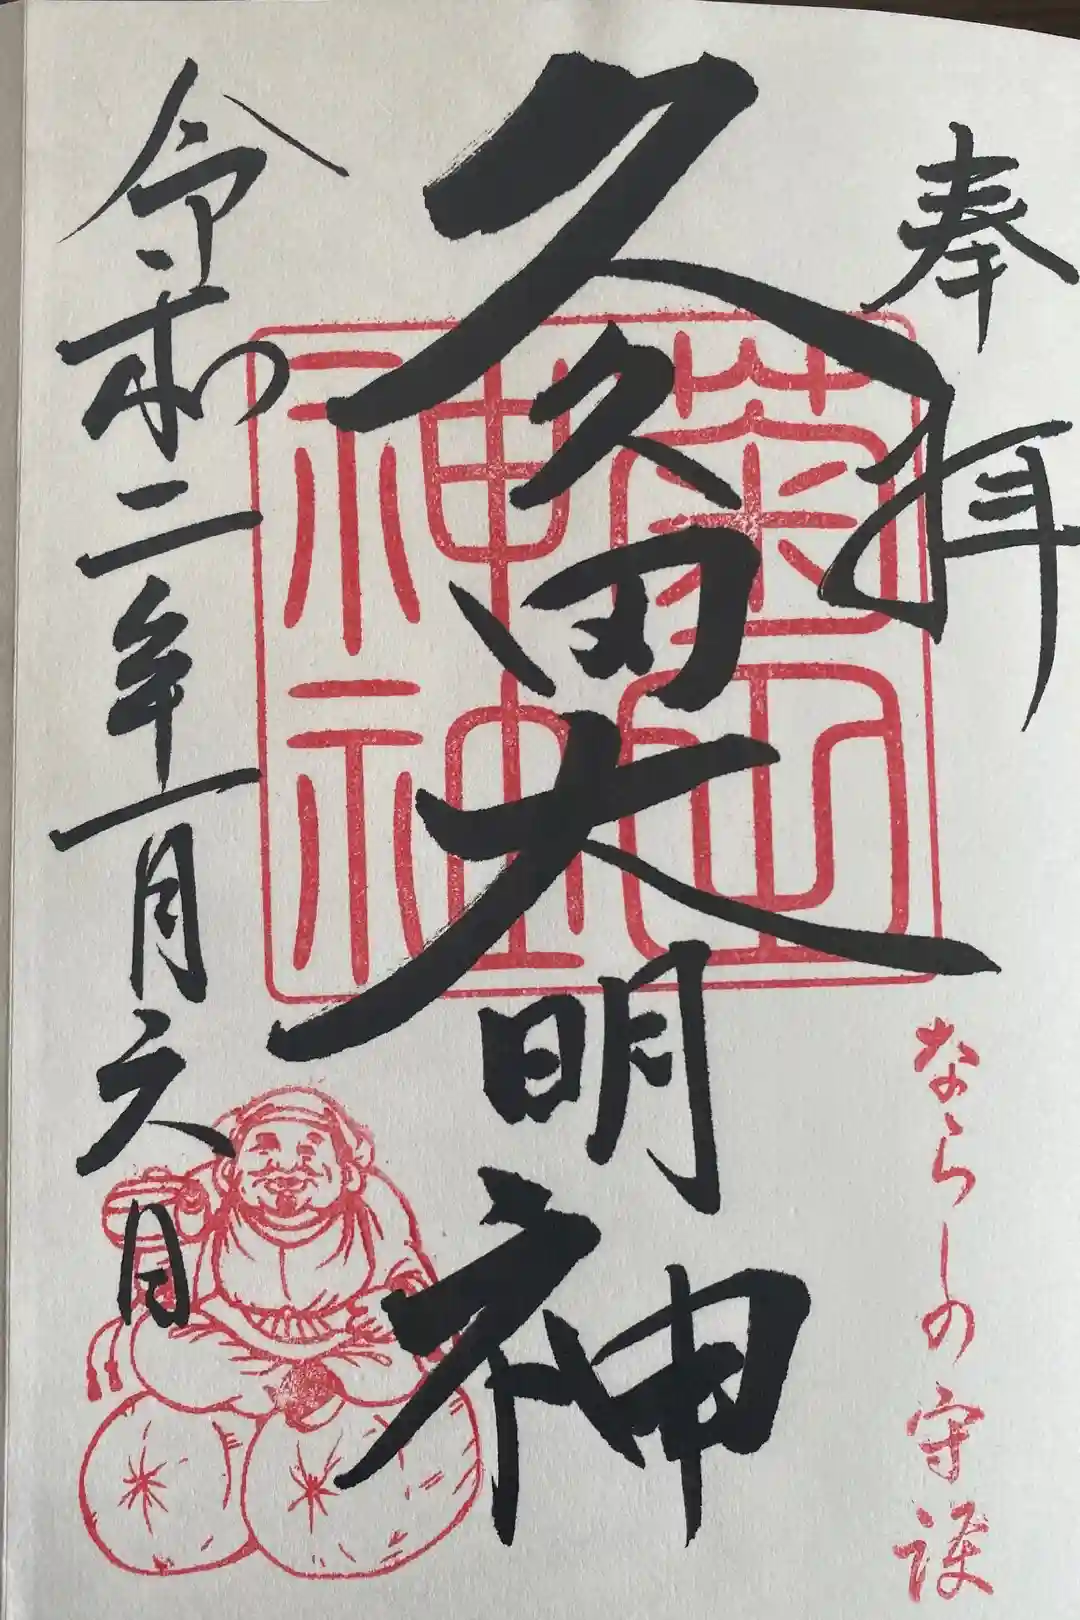 奉拝
ならしの守護
久久田大明神
菊田
神社
令和二年一月六日